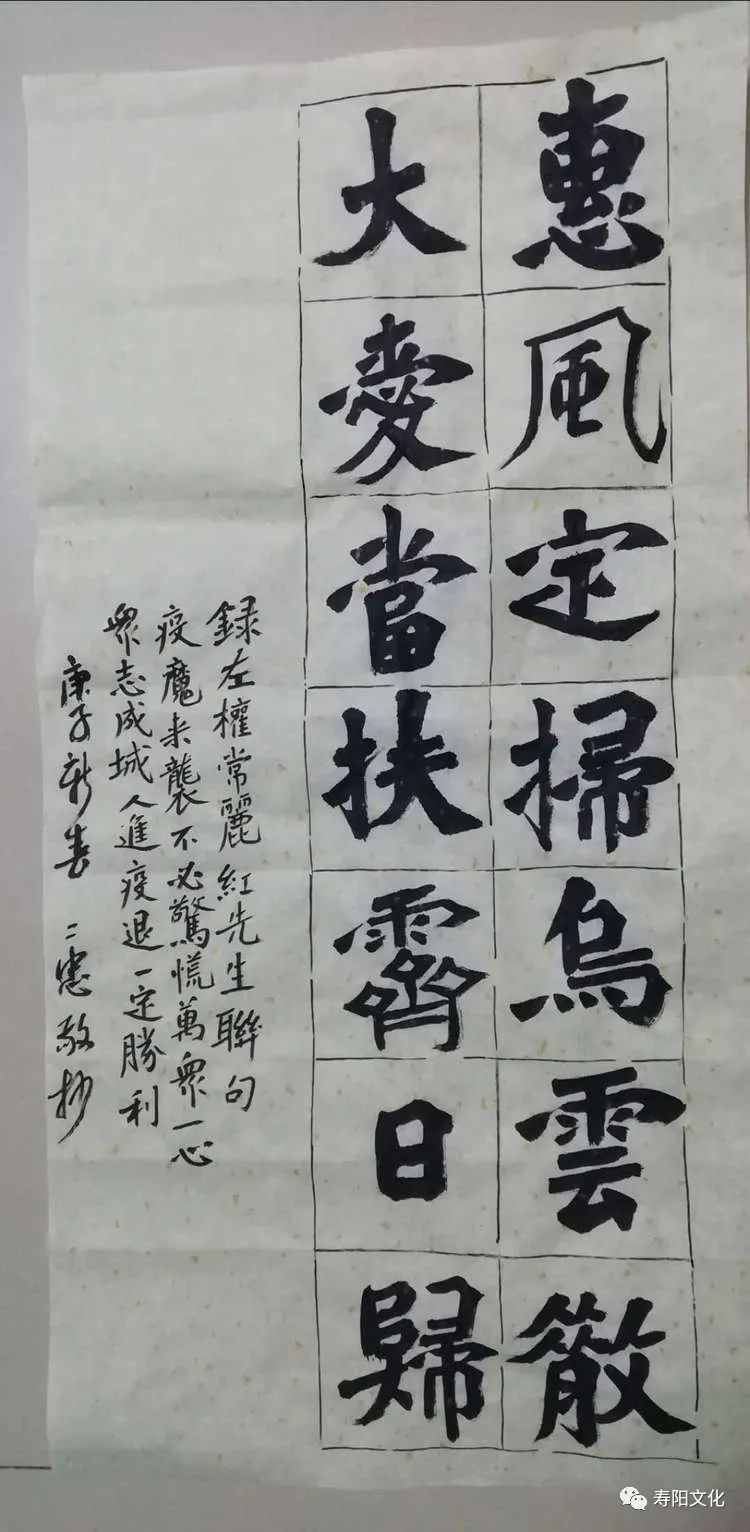 惠風定掃烏雲散
大愛當扶霽日歸
録左權常麗紅先生聯句
疫魔来襲不必驚慌萬衆一心
衆志成城人進疫退一定勝利
庚子新春二忠敬抄
寿阳文化